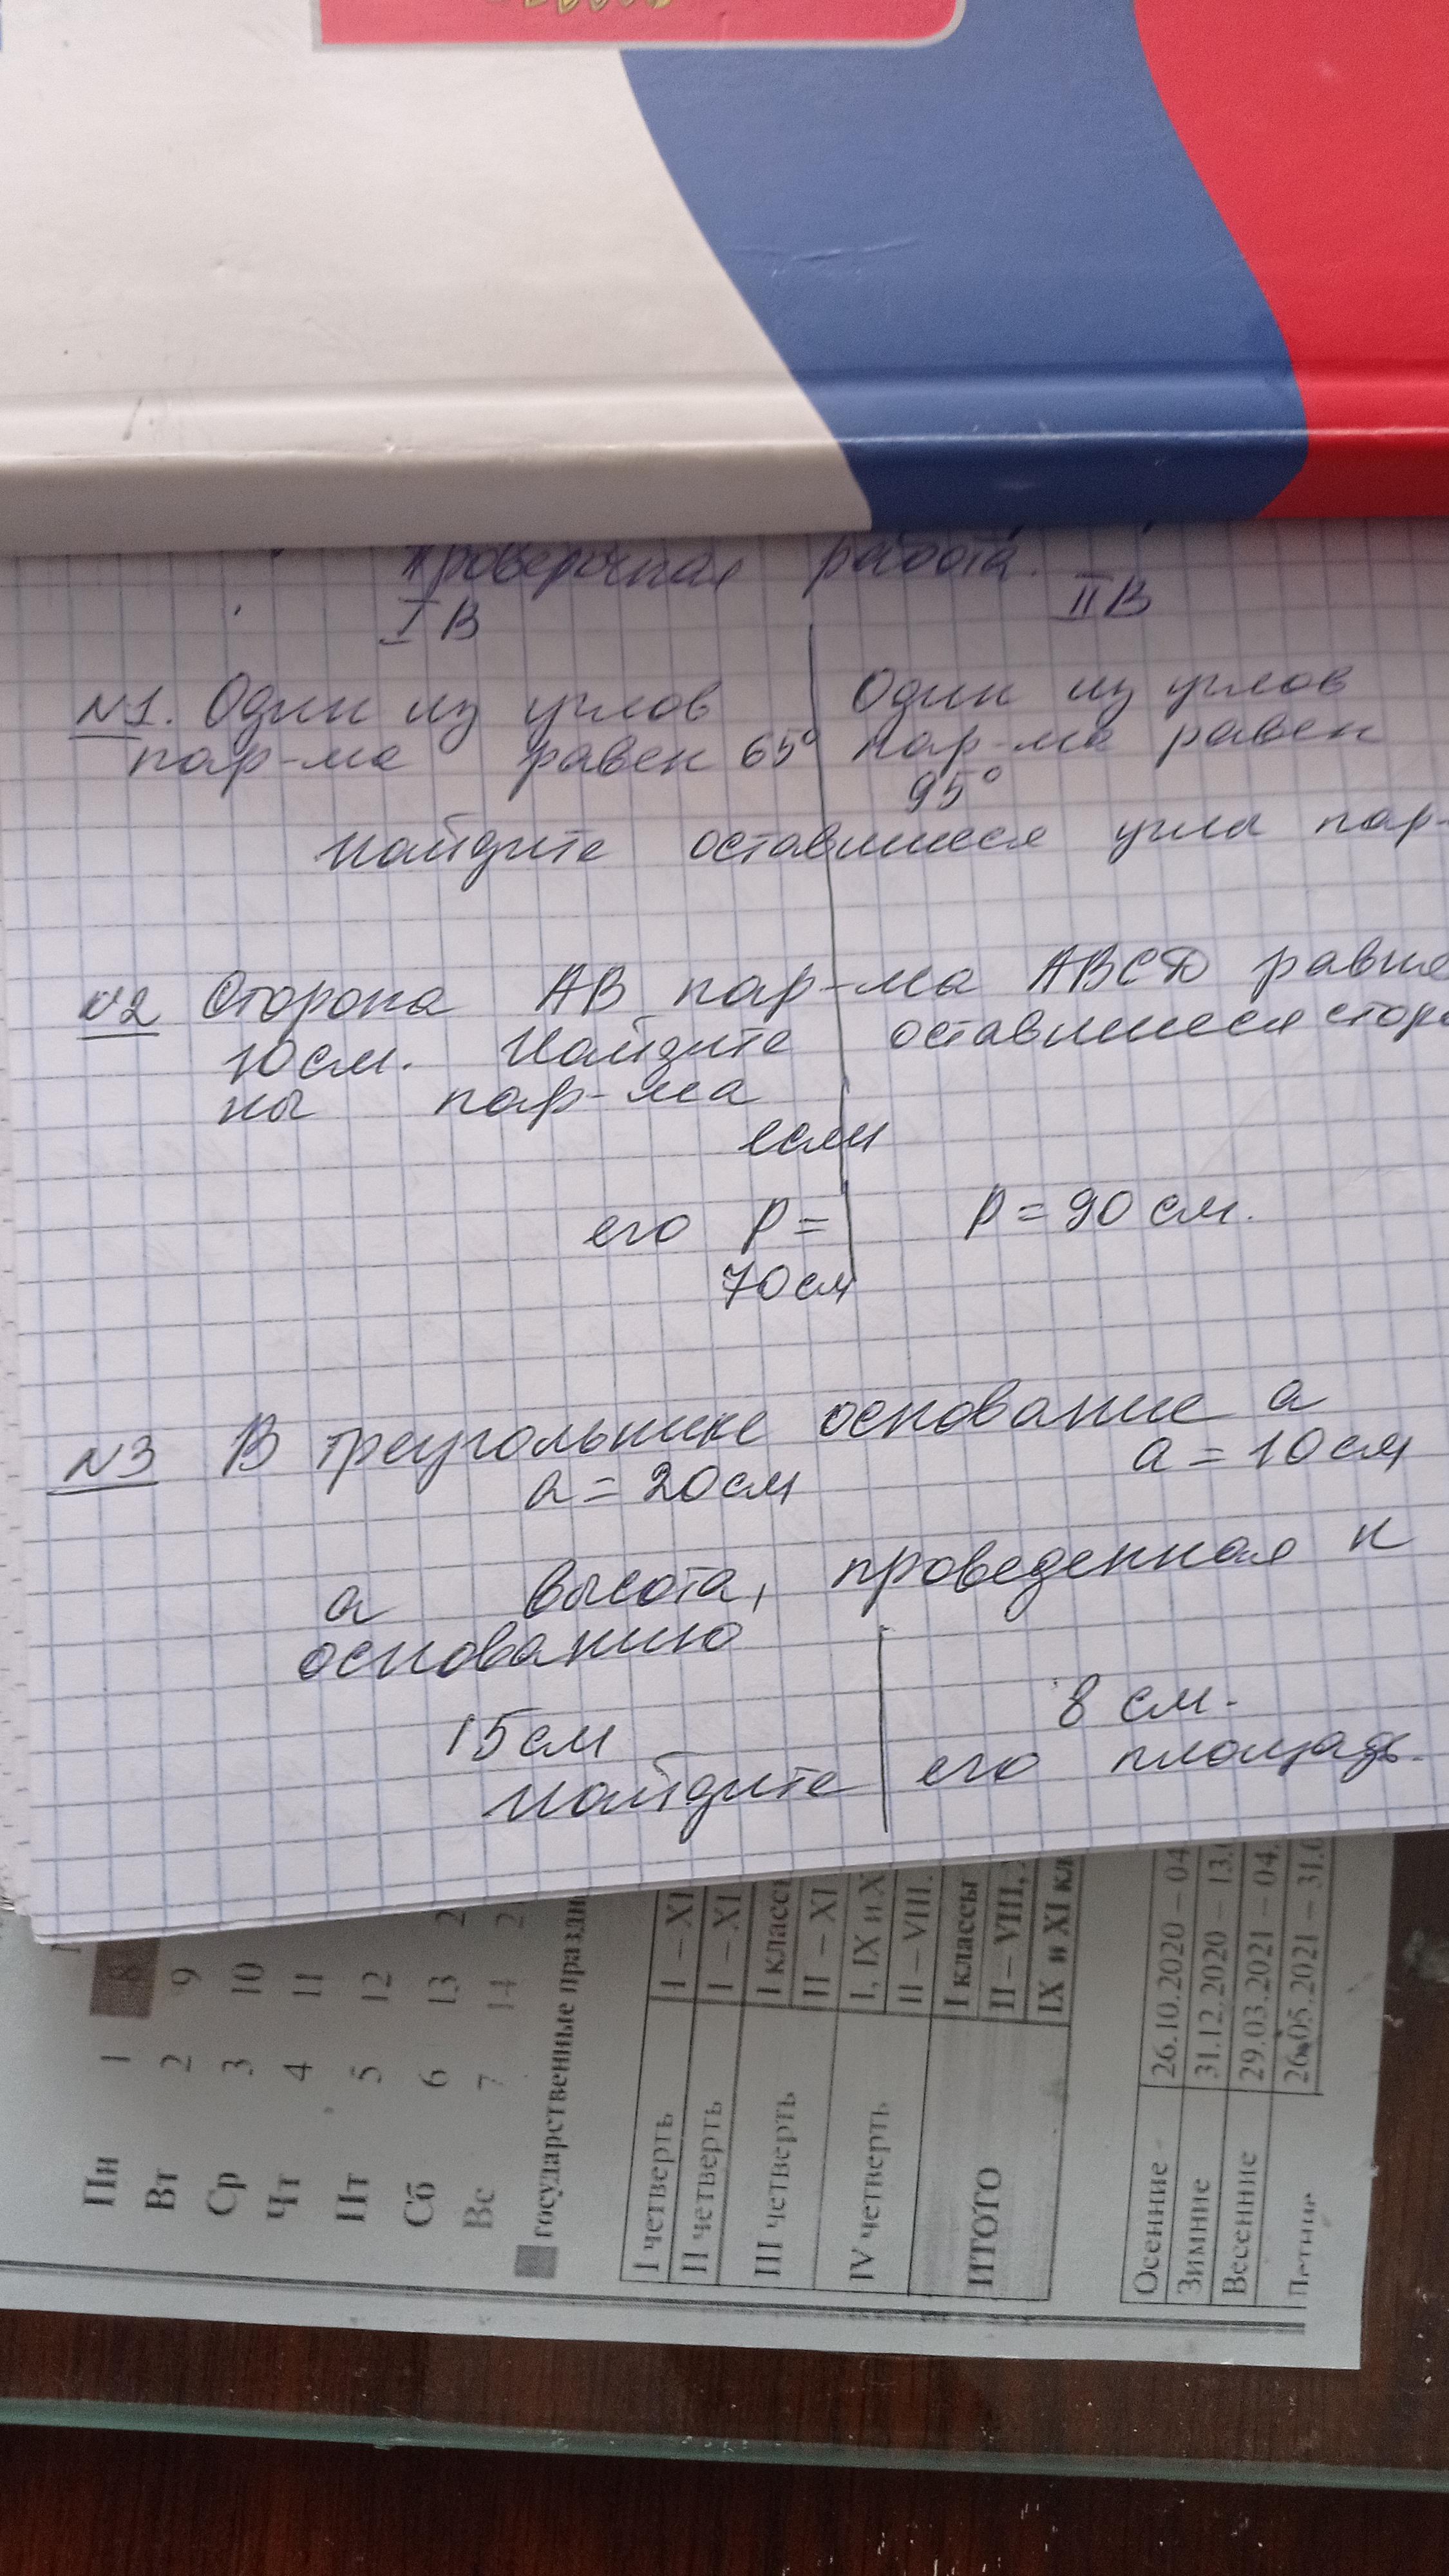 Проверочная работа.
I В
II В
N1. Один из углов
пар-ма равен 65°
Один из углов
пар-ма равен
95°
Найдите оставшиеся угла пар-
N2 Сторона АВ пар-ма АВСД равна
10см. Найдите оставшиеся сторо
ны пар-ма
если
его P =
70см
P = 90 см.
N3 В треугольнике основание a
a = 20см
a = 10см
а высота, проведенная к
основанию
15см
8 см.
Найдите его площадь.
Пн 1 8
Вт 2 9
Ср 3 10
Чт 4 11
Пт 5 12
Сб 6 13 2
Вс 7 14 2
государственные праздн
I четверть I – XI
II четверть I – XI
III четверть I класс
II – XI
IV четверть I, IX и X
II – VIII,
ИТОГО I классы
II – VIII,
IX и XI кл
Осенние 26.10.2020 – 04.
Зимние 31.12.2020 – 13.0
Весенние 29.03.2021 – 04.
Летние 26.05.2021 – 31.0